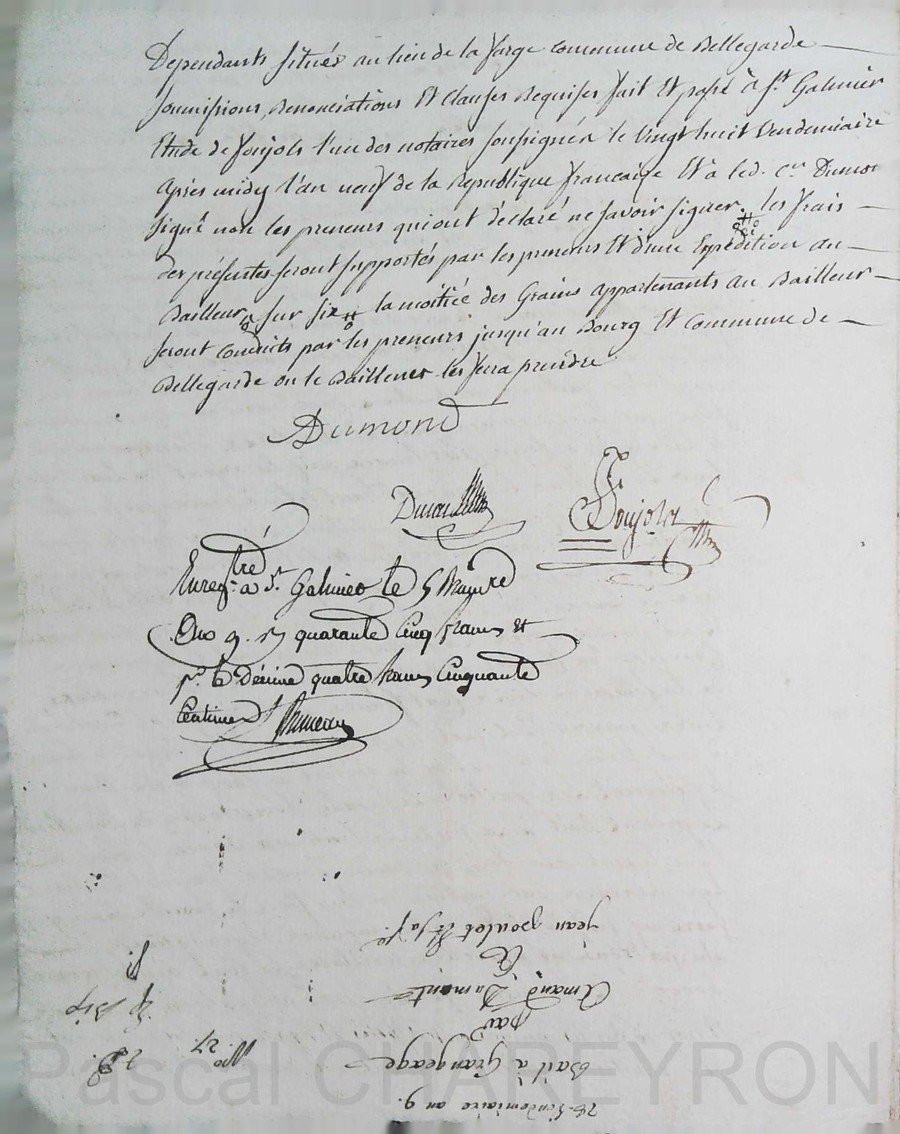 Dependants situés au lieu de la farge commune de Bellegarde
soumissions, Renonciations Et clauses Requises fait Et passé à St. Galmier
Etude de Soujols l'un des notaires soussignés le Vingt huit Vendemiaire
après midy l'an neuf de la Republique francaise Et à led. cen. Dumond
signé non les preneurs qui ont déclaré ne savoir signer. les frais
des présentes seront supportés par les preneurs Et d'une Expédition au
Bailleur sur six la moitiée des Grains appartenants au Bailleur
seront conduits par les preneurs jusqu'au Bourg Et commune de
Bellegarde ou le Bailleur les fera prendre
Dumond
Soujols
Enregtré à St. Galmier le 5 Brum.re
an 9. R quarante Cinq francs et
pr. le Décime quatre francs Cinquante
Centimes
28. Vendemiaire an 9.
Bail à Grangeage
No. 27
par
amand Dumont
à
jean poulet & sa fe.
Pascal CHAPEYRON